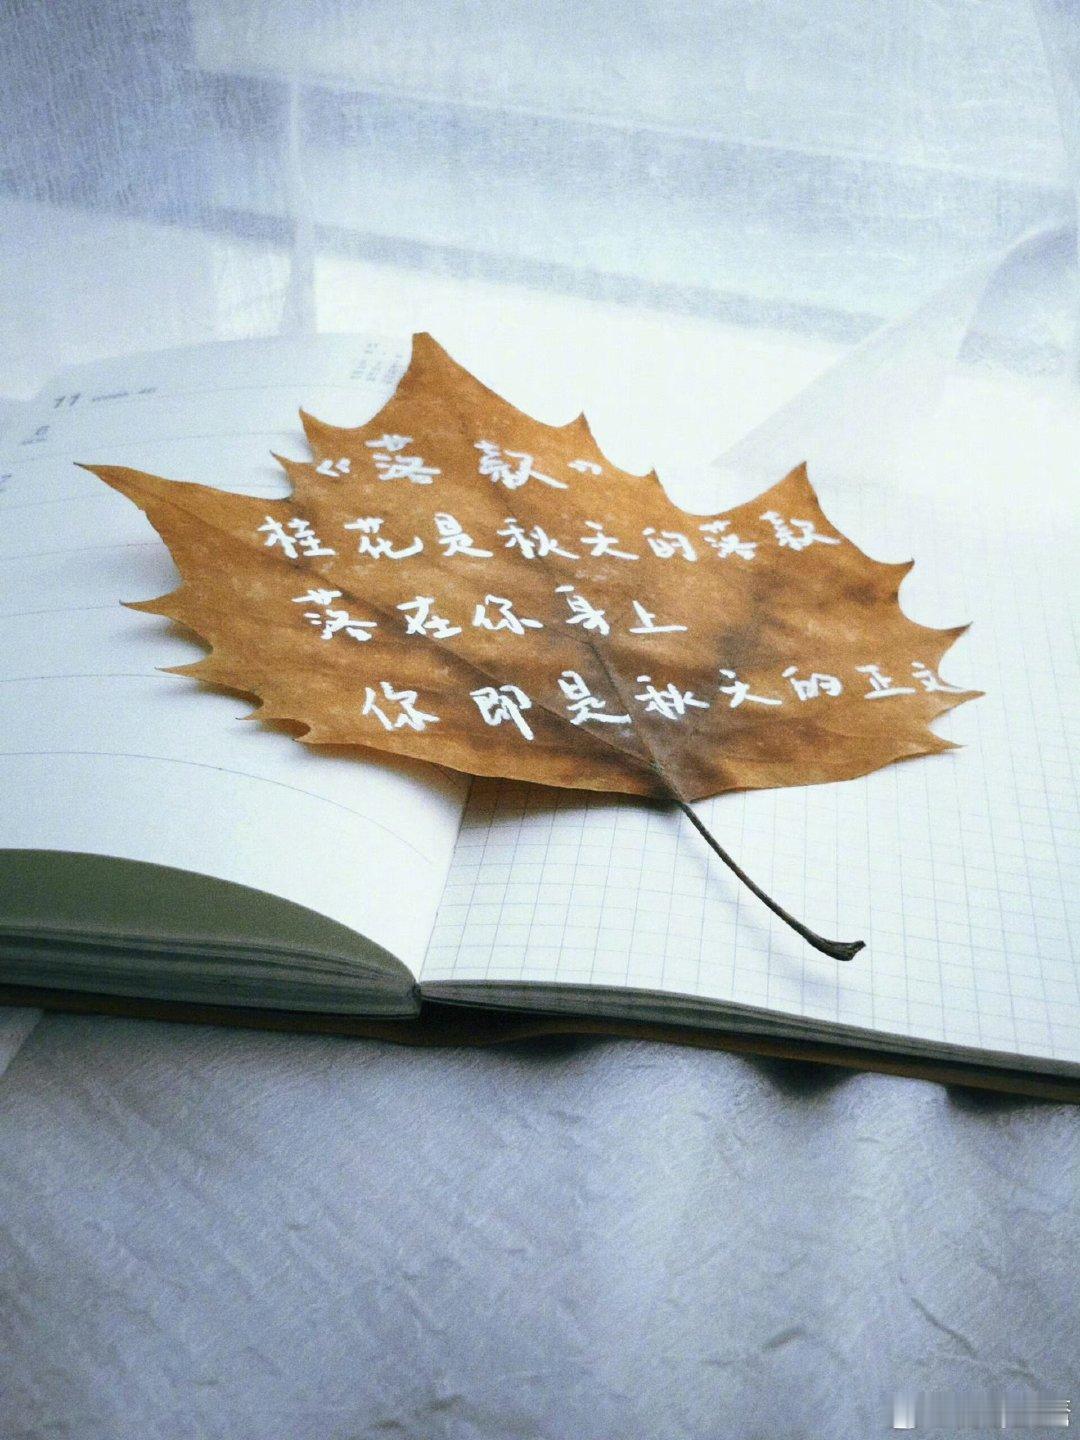 《落款》
桂花是秋天的落款
落在你身上
你即是秋天的正文
11